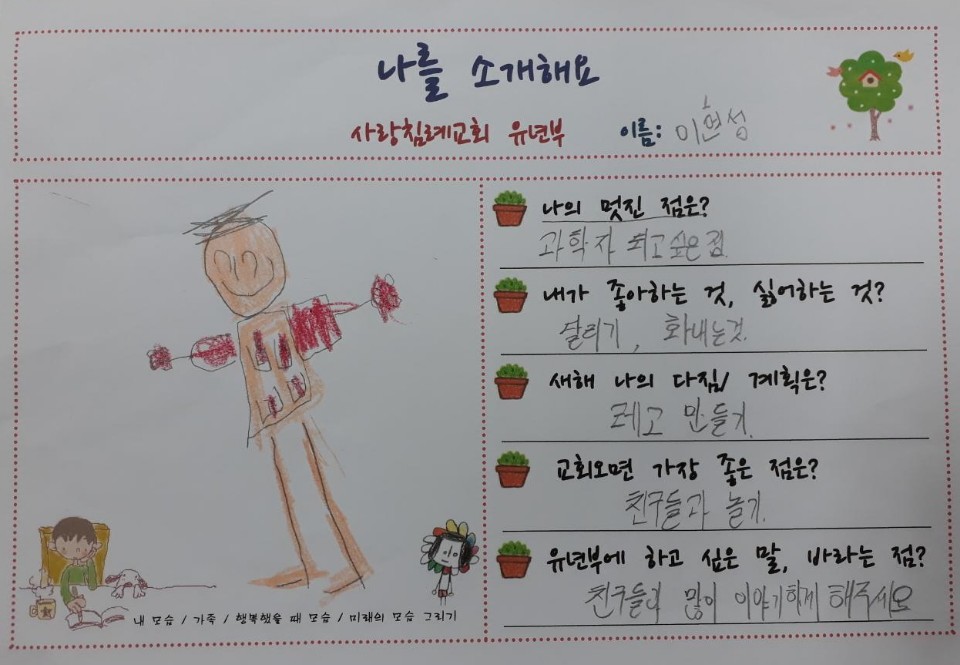 나를 소개해요
사랑침례교회 유년부 이름: 이현성
나의 멋진 점은?
과학자 되고싶은점
내가 좋아하는 것, 싫어하는 것?
달리기, 화내는것.
새해 나의 다짐/ 계획은?
레고 만들기.
교회오면 가장 좋은 점은?
친구들과 놀기.
유년부에 하고 싶은 말, 바라는 점?
친구들과 많이 이야기하게 해주세요
내 모습 / 가족 / 행복했을 때 모습 / 미래의 모습 그리기